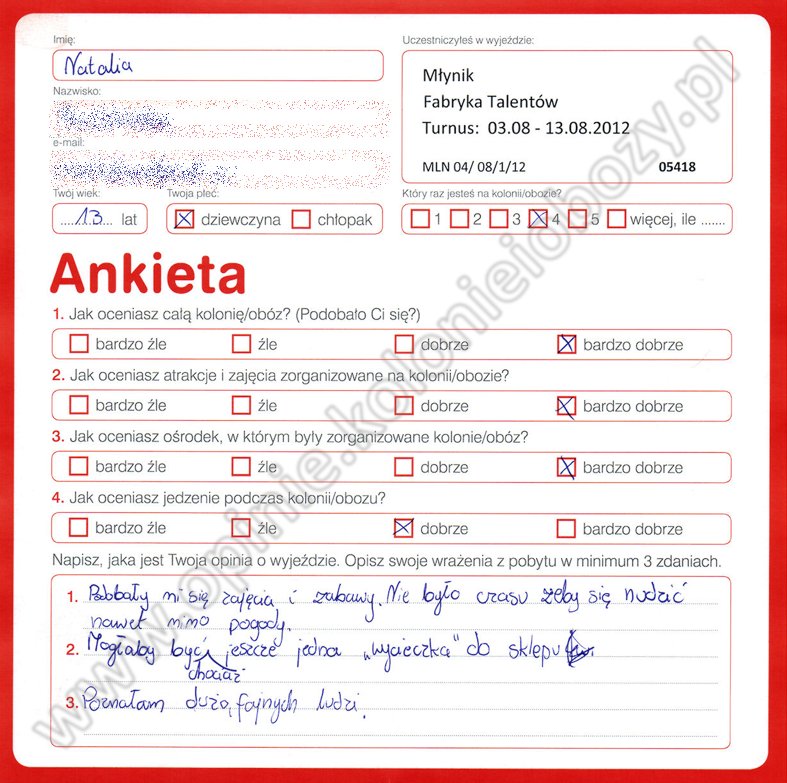 Imię:
Natalia
Nazwisko:
e-mail:
Twój wiek:
13 lat
Twoja płeć:
dziewczyna chłopak
Uczestniczyłeś w wyjeździe:
Młynik
Fabryka Talentów
Turnus: 03.08 - 13.08.2012
MLN 04/ 08/1/12 05418
Który raz jesteś na kolonii/obozie?
1 2 3 4 5 więcej, ile .......
Ankieta
1. Jak oceniasz całą kolonię/obóz? (Podobało Ci się?)
bardzo źle źle dobrze bardzo dobrze
2. Jak oceniasz atrakcje i zajęcia zorganizowane na kolonii/obozie?
bardzo źle źle dobrze bardzo dobrze
3. Jak oceniasz ośrodek, w którym były zorganizowane kolonie/obóz?
bardzo źle źle dobrze bardzo dobrze
4. Jak oceniasz jedzenie podczas kolonii/obozu?
bardzo źle źle dobrze bardzo dobrze
Napisz, jaka jest Twoja opinia o wyjeździe. Opisz swoje wrażenia z pobytu w minimum 3 zdaniach.
1. Podobały mi się zajęcia i zabawy. Nie było czasu żeby się nudzić
nawet mimo pogody.
2. Mogłaby być jeszcze jedna „wycieczka" do sklepu
chociaż
3. Poznałam dużo, fajnych ludzi.
www.opinie.kolonieiobozy.pl